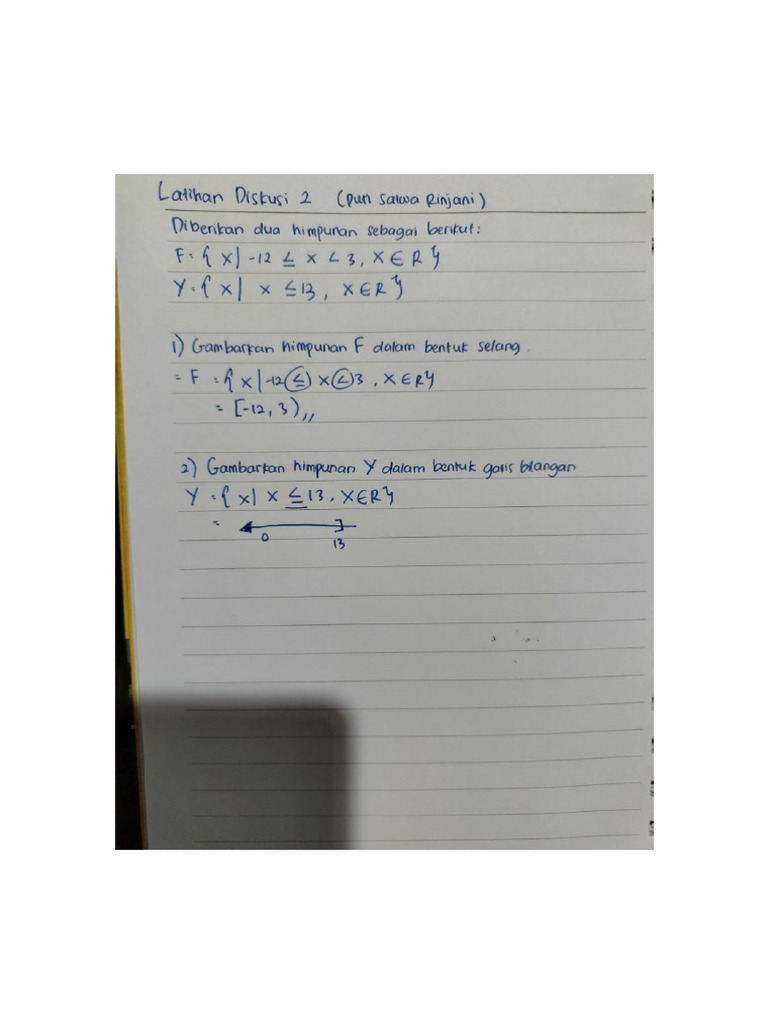 Latihan Diskusi 2 (Putri Salwa Rinjani)
Diberikan dua himpunan sebagai berikut:
F = { x | -12 ≤ x < 3, x ∈ R }
Y = { x | x ≤ 13, x ∈ R }
1) Gambarkan himpunan F dalam bentuk selang.
= F = { x | -12 ≤ x < 3, x ∈ R }
= [-12, 3) ,,
2) Gambarkan himpunan Y dalam bentuk garis bilangan
Y = { x | x ≤ 13, x ∈ R }
=
0 13